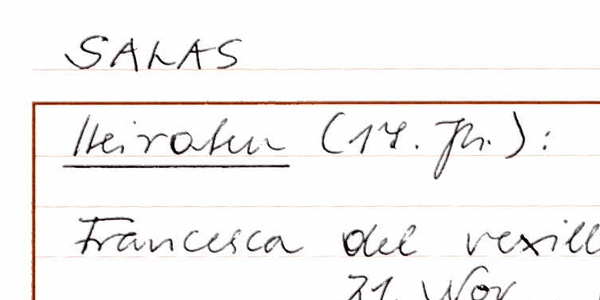 SALAS
Heiraten (17. Jh.):
Francesca del vexill
21. Nov